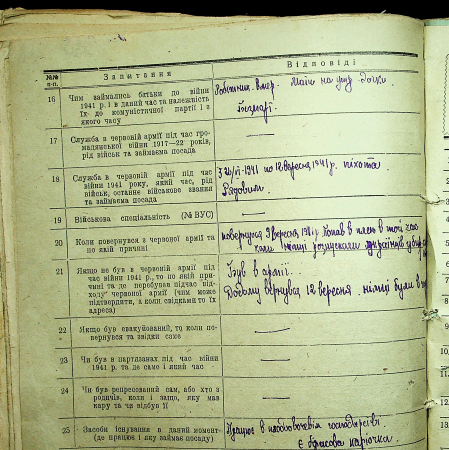 №№ п-п.
Запитання
Відповіді
16
Чим займались батьки до війни
1941 р. і в даний час та належність
їх до комуністичної партії і з
якого часу
Робітник. Вмер. Мати на
17
Служба в червоній армії під час гро-
мадянської війни 1917—22 років,
рід військ та займаєма посада
—
18
Служба в червоній армії під час
війни 1941 року, який час, рід
військ, останнє військове звання
та займаєма посада
З 26/VI-1941 по 12 вересня 1941 р. піхота
Рядовим.
19
Військова спеціальність (№ ВУС)
—
20
Коли повернувся з червоної армії та
по якій причині
повернувся 9 вересня попав в плен в той час
21
Якщо не був в червоній армії під
час війни 1941 р., то по якій при-
чині та де перебував підчас від-
ходу червоної армії (чим може
підтвердити, а коли свідками то їх
адреса)
Був в армії.
Додому вернувся 12 вересня німці були в
22
Якщо був евакуйований, то коли по-
вернувся та звідки саме
—
23
Чи був в партизанах під час війни
1941 р. та де саме і який час
—
24
Чи був репресований сам, або хто з
родичів, коли і защо, яку мав
кару та чи відбув її
—
25
Засоби існування в даний момент
(до працює і яку займає посаду)
Працює в господарстві.
Є карточка.